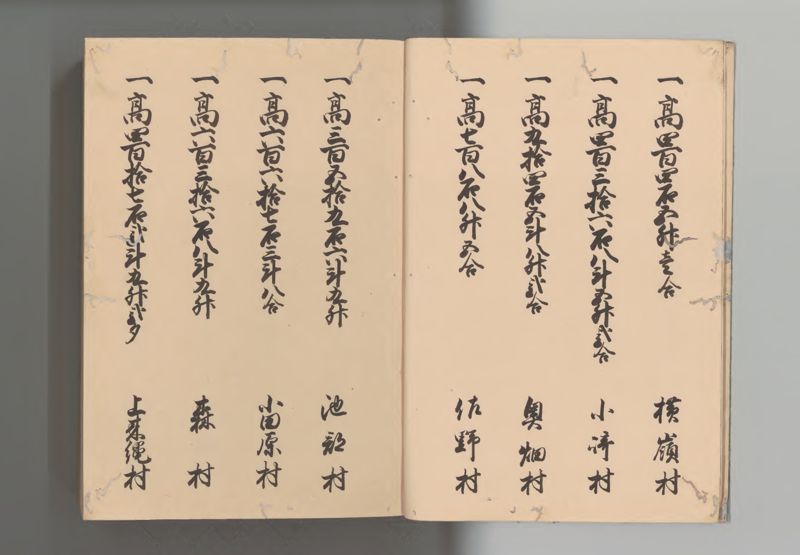 一高四百四石五升壱合 横嶺村
一高四百三拾六石八斗五升弐合 小崎村
一高九拾四石五斗八升弐合 奥畑村
一高七百八石八升五合 佐野村
一高三百五拾九石六斗九升 池部村
一高六百六拾七石三斗八合 小田原村
一高六百三拾六石八斗九升 森村
一高四百拾七石弐斗九升弐夕 上来縄村